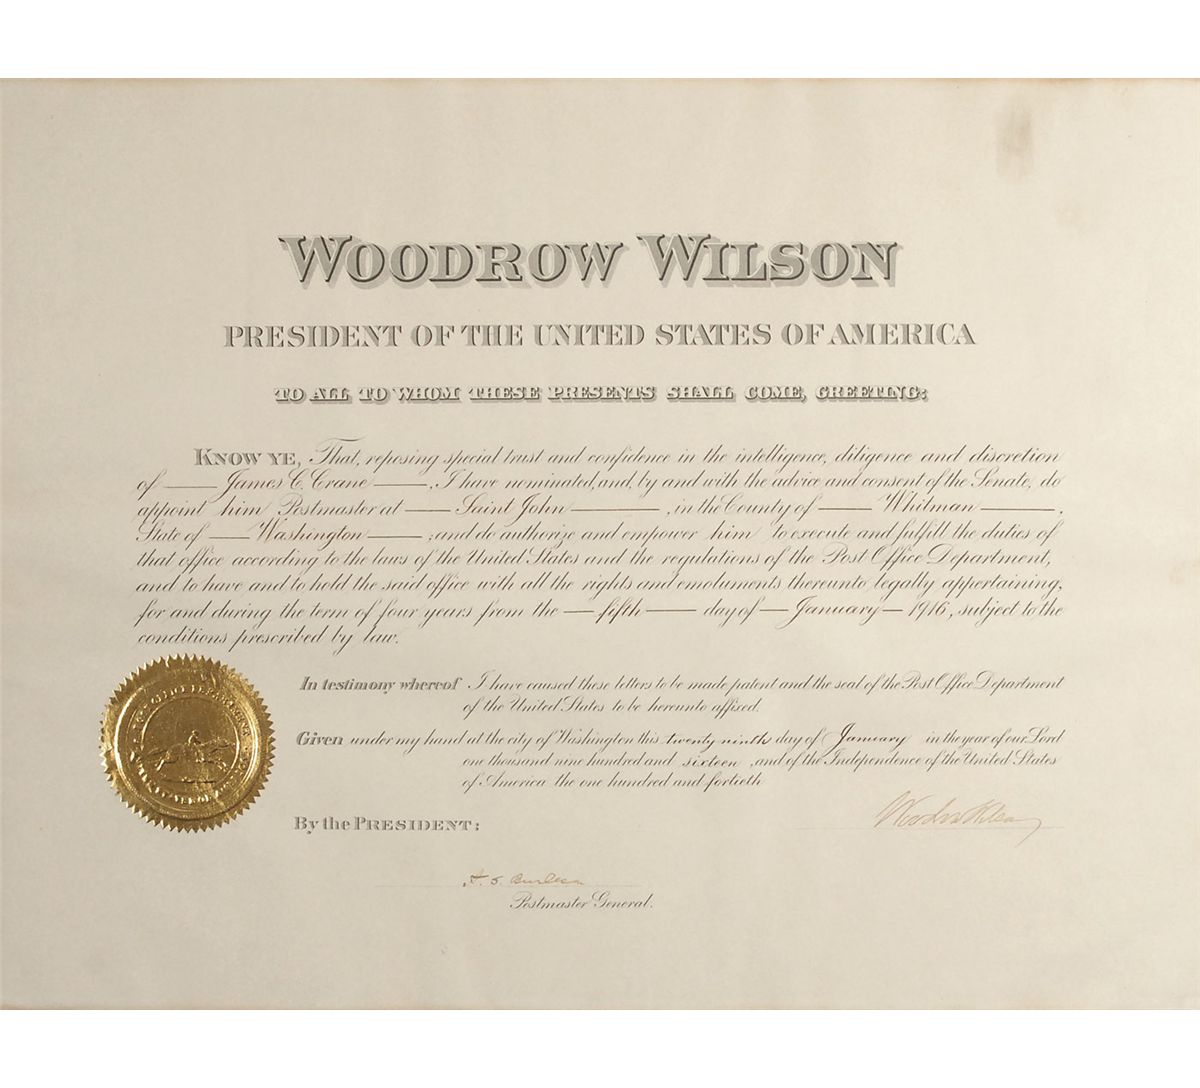 WOODROW WILSON
PRESIDENT OF THE UNITED STATES OF AMERICA
TO ALL TO WHOM THESE PRESENTS SHALL COME, GREETING:
KNOW YE, That, reposing special trust and confidence in the intelligence, diligence and discretion
of James C. Crane, I have nominated, and, by and with the advice and consent of the Senate, do
appoint him Postmaster at Saint John, in the County of Whitman,
State of Washington; and do authorize and empower him to execute and fulfill the duties of
that office according to the laws of the United States and the regulations of the Post Office Department,
and to have and to hold the said office with all the rights and emoluments thereunto legally appertaining,
for and during the term of four years from the fifth day of January 1916, subject to the
conditions prescribed by law.
In testimony whereof I have caused these letters to be made patent and the seal of the Post Office Department
of the United States to be hereunto affixed.
Given under my hand at the city of Washington this twenty ninth day of January in the year of our Lord
one thousand nine hundred and sixteen, and of the Independence of the United States
of America the one hundred and fortieth
By the PRESIDENT:
Woodrow Wilson
A. S. Burleson
Postmaster General.